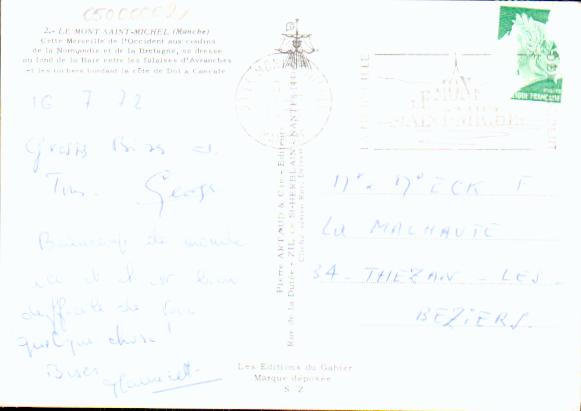 2.- LE MONT SAINT-MICHEL (Manche)
Cette Merveille de l'Occident aux confins
de la Normandie et de la Bretagne, se dresse
au fond de la Baie entre les falaises d'Avranches
et les rochers bordant la côte de Dol à Cancale
16 7 72
Grosses Bises à
Tous. George
Beaucoup de monde
ici et il est bien
difficile de
quelque chose!
Bises
Pierre ARTAUD & Cie - Editeurs
Rue de la Dutée - ZIL, 44 St-HERBLAIN-NANTES
LE MONT
SAINT-MICHEL
Mr & Me ECK F
LA MALHAUTE
34 - THEZAN - LES -
BEZIERS.
Les Editions du Gabier
Marque déposée
S Z